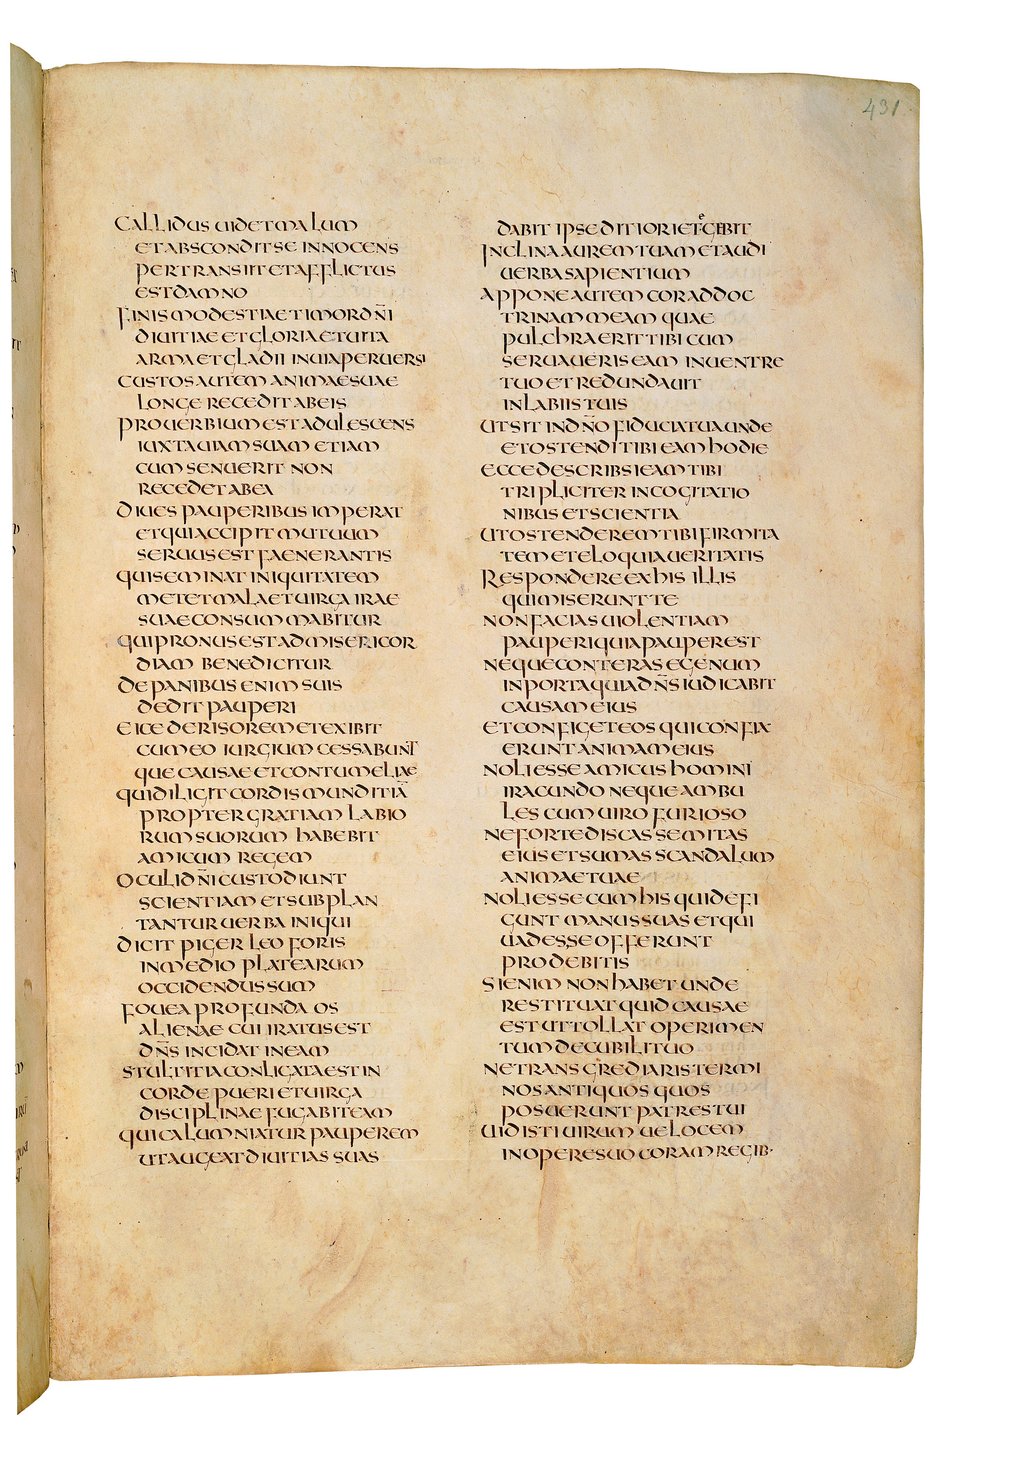 431
CALLIDUS UIDET MALUM
ET ABSCONDIT SE INNOCENS
PERTRANSIIT ET AFFLICTUS
EST DAMNO
FINIS MODESTIAE TIMOR DN̄I
DIUITIAE ET GLORIA ET UITA
ARMA ET GLADII IN UIA PERUERSI
CUSTOS AUTEM ANIMAE SUAE
LONGE RECEDIT AB EIS
PROUERBIUM EST ADULESCENS
IUXTA UIAM SUAM ETIAM
CUM SENUERIT NON
RECEDET AB EA
DIUES PAUPERIBUS IMPERAT
ET QUI ACCIPIT MUTUUM
SERUUS EST FAENERANTIS
QUI SEMINAT INIQUITATEM
METET MALA ET UIRGA IRAE
SUAE CONSUMMABITUR
QUI PRONUS EST AD MISERICOR
DIAM BENEDICITUR
DE PANIBUS ENIM SUIS
DEDIT PAUPERI
EICE DERISOREM ET EXIBIT
CUM EO IURGIUM CESSABUNT
QUE CAUSAE ET CONTUMELIAE
QUI DILIGIT CORDIS MUNDITIĀ
PROPTER GRATIAM LABIO
RUM SUORUM HABEBIT
AMICUM REGEM
OCULI DN̄I CUSTODIUNT
SCIENTIAM ET SUBPLAN
TANTUR UERBA INIQUI
DICIT PIGER LEO FORIS
IN MEDIO PLATEARUM
OCCIDENDUS SUM
FOUEA PROFUNDA OS
ALIENAE CUI IRATUS EST
DN̄S INCIDAT IN EAM
STULTITIA CONLIGATA EST IN
CORDE PUERI ET UIRGA
DISCIPLINAE FUGABIT EAM
QUI CALUMNIATUR PAUPEREM
UT AUGEAT DIUITIAS SUAS
DABIT IPSE DITIORI ET EGEBIT
INCLINA AUREM TUAM ET AUDI
UERBA SAPIENTIUM
APPONE AUTEM COR AD DOC
TRINAM MEAM QUAE
PULCHRA ERIT TIBI CUM
SERUAUERIS EAM IN UENTRE
TUO ET REDUNDAUIT
IN LABIIS TUIS
UT SIT IN DN̄O FIDUCIA TUA UNDE
ET OSTENDI TIBI EAM HODIE
ECCE DESCRIBSI EAM TIBI
TRIPLICITER IN COGITATIO
NIBUS ET SCIENTIA
UT OSTENDEREM TIBI FIRMITA
TEM ET ELOQUIA UERITATIS
RESPONDERE EX HIS ILLIS
QUI MISERUNT TE
NON FACIAS UIOLENTIAM
PAUPERI QUIA PAUPER EST
NEQUE CONTERAS EGENUM
IN PORTA QUIA DN̄S IUDICABIT
CAUSAM EIUS
ET CONFIGET EOS QUI CONFIX
ERUNT ANIMAM EIUS
NOLI ESSE AMICUS HOMINI
IRACUNDO NEQUE AMBU
LES CUM UIRO FURIOSO
NE FORTE DISCAS SEMITAS
EIUS ET SUMAS SCANDALUM
ANIMAE TUAE
NOLI ESSE CUM HIS QUI DEFI
GUNT MANUS SUAS ET QUI
UADES SE OFFERUNT
PRO DEBITIS
SI ENIM NON HABET UNDE
RESTITUAT QUID CAUSAE
EST UT TOLLAT OPERIMEN
TUM DE CUBILI TUO
NE TRANSGREDIARIS TERMI
NOS ANTIQUOS QUOS
POSUERUNT PATRES TUI
UIDISTI UIRUM UELOCEM
IN OPERE SUO CORAM REGIB·